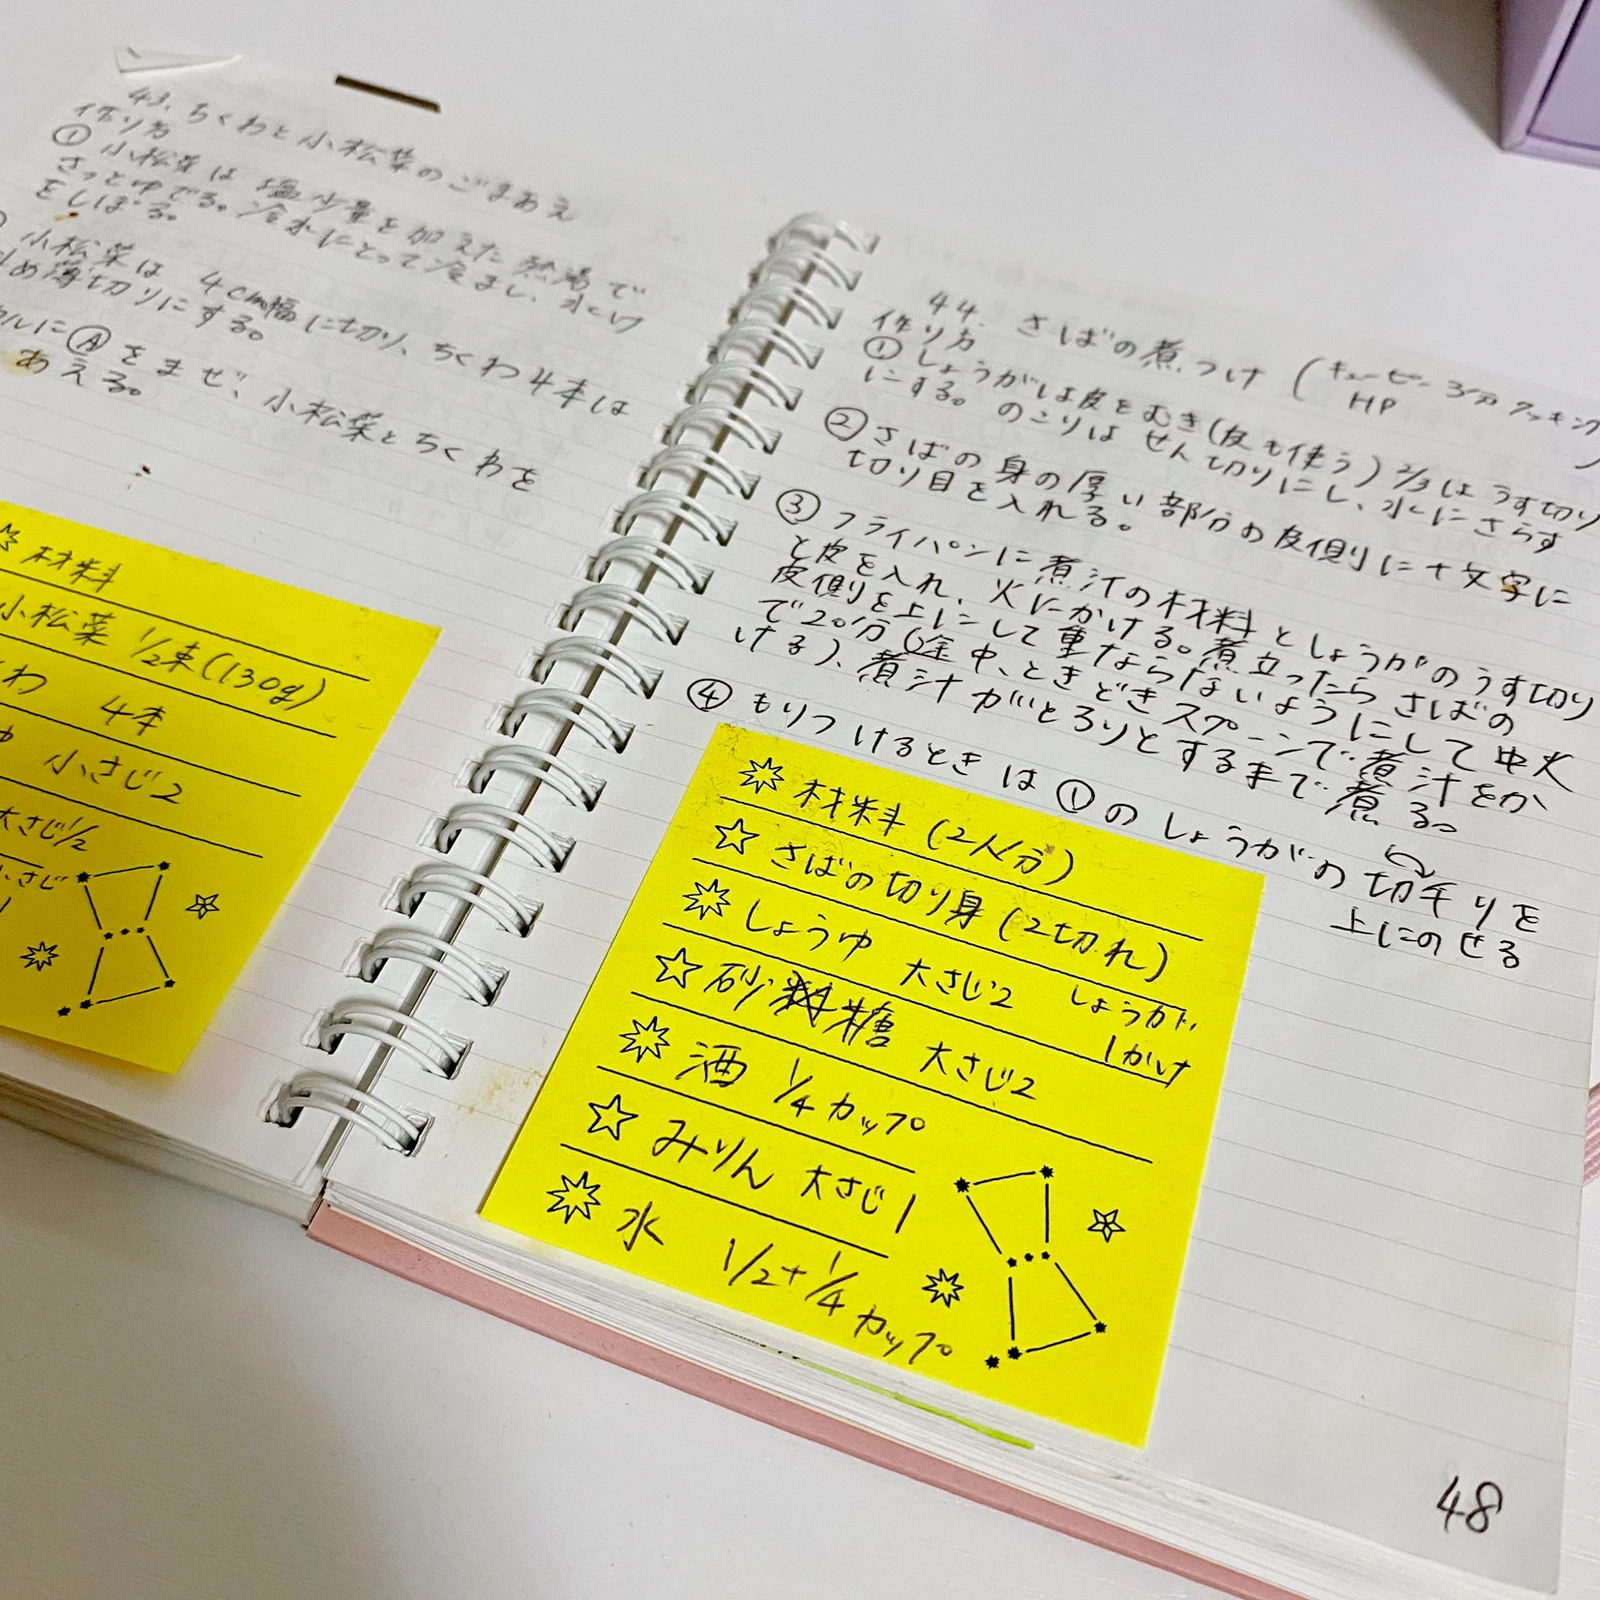 43. ちくわと小松菜のごまあえ
作り方
① 小松菜は塩少量を加えた熱湯で
さっとゆでる。冷水にとって冷まし、水け
をしぼる。
小松菜は 4cm幅に切り、ちくわ4本は
め薄切りにする。
ルにⒶをまぜ、小松菜とちくわを
あえる。
材料
小松菜 1/2束(130g)
わ 4本
小さじ2
大さじ1/2
小さじ
44. さばの煮つけ (キューピー3分クッキング
HP)
作り方
① しょうがは皮をむき(皮も使う) 2/3はうす切り
にする。のこりはせん切りにし、水にさらす
② さばの身の厚い部分の皮側に十文字に
切り目を入れる。
③ フライパンに煮汁の材料としょうがのうす切り
と皮を入れ、火にかける。煮立ったらさばの
皮側を上にして重ならないようにして中火
で20分(途中、ときどきスプーンで煮汁をか
ける)、煮汁がとろりとするまで煮る。
④ もりつけるときは①のしょうがの切千りを
上にのせる
材料 (2人分)
さばの切り身 (2切れ)
しょうゆ 大さじ2
しょうが
1かけ
砂糖 大さじ2
酒 1/4カップ
みりん 大さじ1
水 1/2+1/4カップ
48